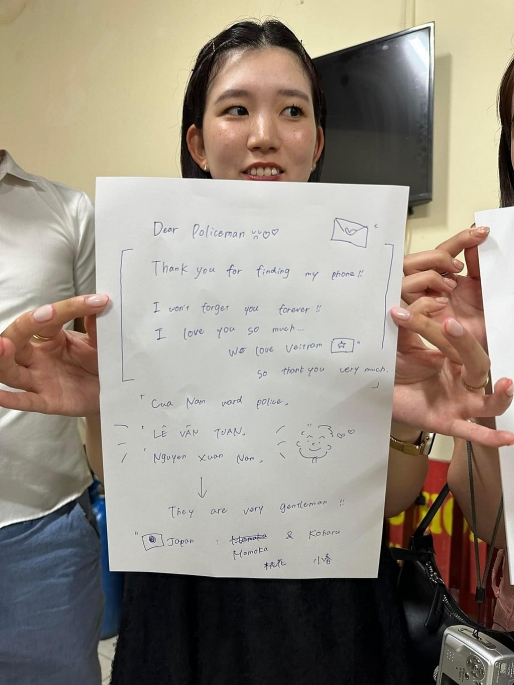 Dear Policeman
Thank you for finding my phone!!
I won't forget you forever!!
I love you so much...
We love Veitnam
so thank you very much.
Cua Nam ward police.
LÊ VĂN TUAN.
Nguyen Xuan Nam.
They are very gentleman !!
Japan : Momoka & Koharu
Momoka
桃花 小春